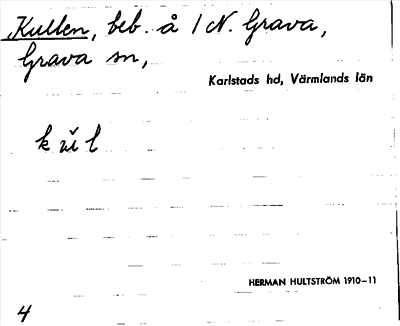 Kullen, beb. å 1 N. Grava,
Grava sn,
Karlstads hd, Värmlands län
HERMAN HULTSTRÖM 1910–11
4